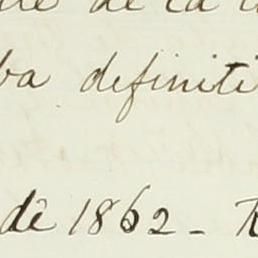 de la
ba definiti
de 1862 -